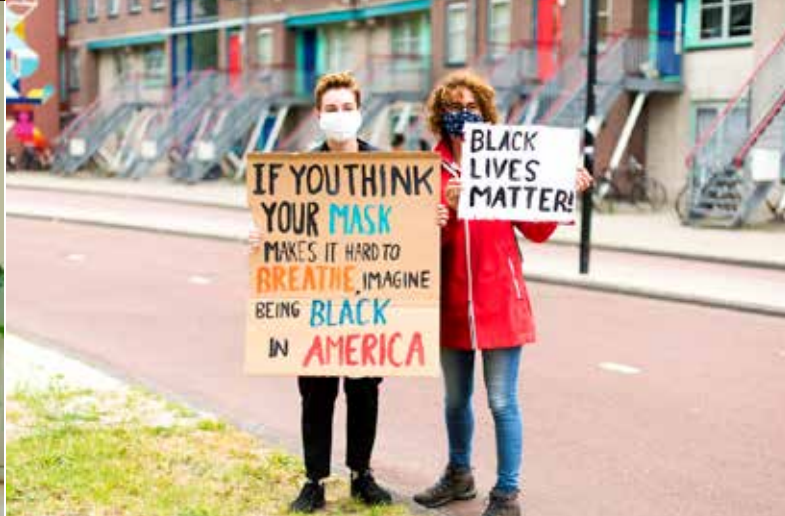 IF YOU THINK
YOUR MASK
MAKES IT HARD TO
BREATHE, IMAGINE
BEING BLACK
IN AMERICA
BLACK
LIVES
MATTER!